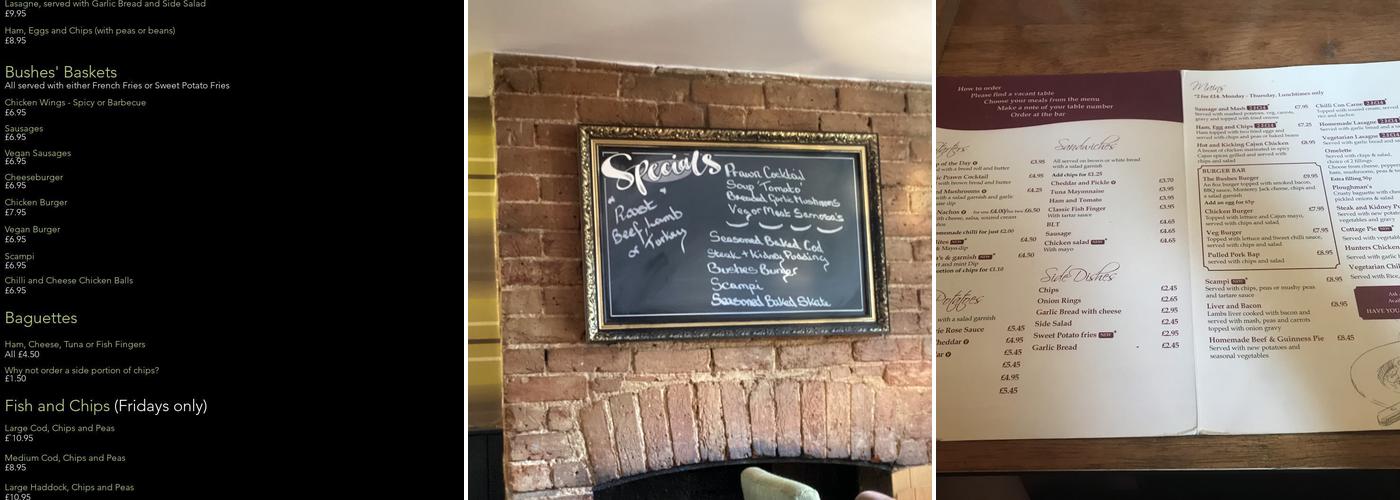 Lasagne, served with Garlic Bread and Side Salad
£9.95
Ham, Eggs and Chips (with peas or beans)
£8.95
Bushes' Baskets
All served with either French Fries or Sweet Potato Fries
Chicken Wings - Spicy or Barbecue
£6.95
Sausages
£6.95
Vegan Sausages
£6.95
Cheeseburger
£6.95
Chicken Burger
£7.95
Vegan Burger
£6.95
Scampi
£6.95
Chilli and Cheese Chicken Balls
£6.95
Baguettes
Ham, Cheese, Tuna or Fish Fingers
All £4.50
Why not order a side portion of chips?
£1.50
Fish and Chips (Fridays only)
Large Cod, Chips and Peas
£10.95
Medium Cod, Chips and Peas
£8.95
Large Haddock, Chips and Peas
£10.95
Specials
Roast
Beef, Lamb
or Turkey
Prawn Cocktail
Soup 'Tomato'
Breaded Garlic Mushrooms
Veg or Meat Samosa's
Seasoned Baked Cod
Steak + Kidney Pudding
Bushes Burger
Scampi
Seasoned Baked Skate
How to order
Please find a vacant table
Choose your meals from the menu
Make a note of your table number
Order at the bar
of the Day £3.95
with a bread roll and butter
Prawn Cocktail £4.95
with brown bread and butter
Mushrooms £4.25
with a salad garnish and garlic
dip
Nachos for one £4.00/for two £6.50
with cheese, salsa, soured cream
homemade chilli for just £2.00
£4.50
& Mayo dip
& garnish NEW £4.50
and mint Dip
portion of chips for £1.10
Potatoes
with a salad garnish
Marie Rose Sauce £5.45
Cheddar £4.95
£5.45
£5.45
£4.95
£5.45
Sandwiches
All served on brown or white bread
with a salad garnish
Add chips for £1.25
Cheddar and Pickle £3.70
Tuna Mayonnaise £3.95
Ham and Tomato £3.95
Classic Fish Finger £3.95
With tartar sauce
BLT £4.65
Sausage £4.65
Chicken salad NEW £4.65
With mayo
Side Dishes
Chips £2.45
Onion Rings £2.65
Garlic Bread with cheese £2.95
Side Salad £2.45
Sweet Potato fries NEW £2.95
Garlic Bread - £2.45
Mains
*2 for £14. Monday - Thursday, Lunchtimes only
Sausage and Mash 2 FOR £14* £7.95
Served with mashed potatoes, veg, carrots,
gravy and topped with fried onions
Ham, Egg and Chips 2 FOR £14* £7.25
Ham topped with two fried eggs and
served with chips and peas or baked beans
Hot and Kicking Cajun Chicken £8.95
A breast of chicken marinated in spicy
Cajun spices grilled and served with
chips and salad
BURGER BAR
The Bushes Burger £9.95
An 8oz burger topped with smoked bacon,
BBQ sauce, Monterey Jack cheese, chips and
a salad garnish
Add an egg for 65p
Chicken Burger £7.95
Topped with lettuce and Cajun mayo,
served with chips and salad
Veg Burger £7.95
Topped with lettuce and Sweet chilli sauce,
served with chips and salad
Pulled Pork Bap £8.95
served with chips and salad
Scampi NEW £8.95
Served with chips, peas or mushy peas
and tartare sauce
Liver and Bacon £8.95
Lambs liver cooked with bacon and
served with mash, peas and carrots
topped with onion gravy
Homemade Beef & Guinness Pie £8.45
Served with new potatoes and
seasonal vegetables
Chilli Con Carne 2 FOR £14*
Topped with soured cream, served
rice and nachos
Homemade Lasagne
Served with garlic bread and a
Vegetarian Lasagne
Served with garlic bread and
Omelette
Served with chips & salad,
choice of 2 fillings.
Choose from cheese,
ham, mushrooms, peas &
Extra filling 50p
Ploughman's
Crusty baguette with
pickled onions & salad
Steak and Kidney
Served with new potatoes
vegetables and gravy
Cottage Pie NEW
Served with seasonal
Hunters Chicken
Served with
Vegetarian
Served with Rice,
HAVE YOU